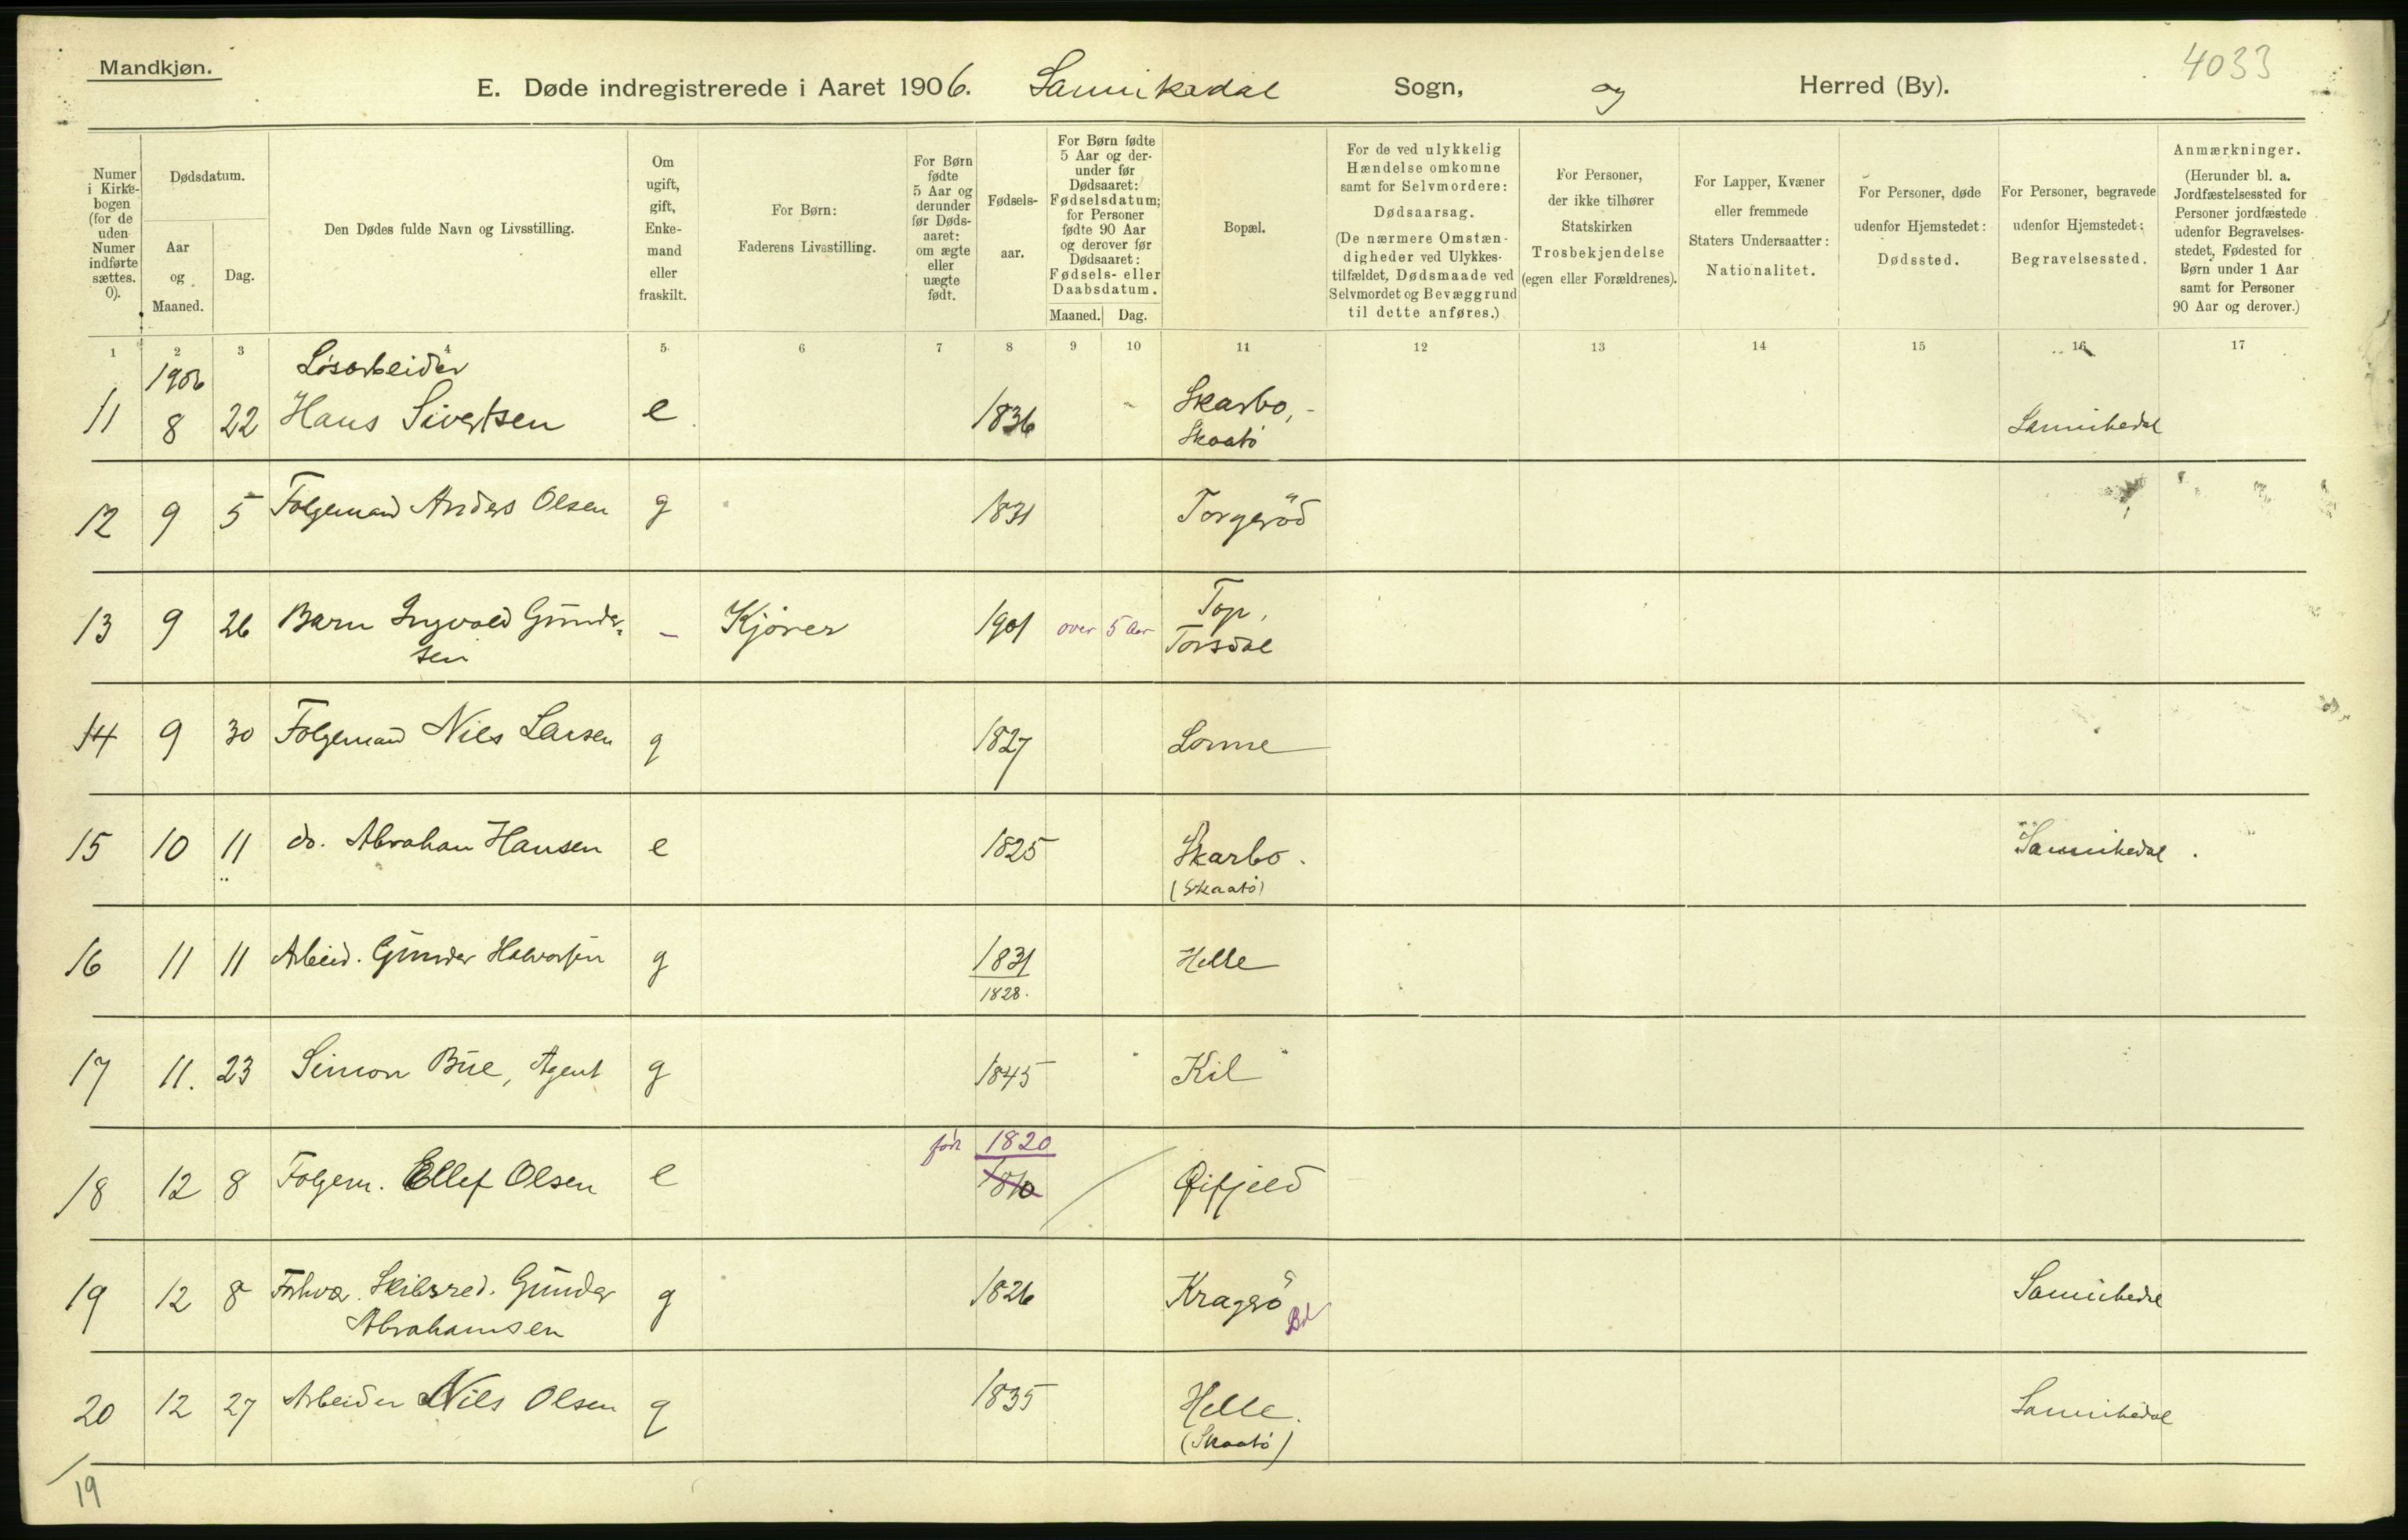 Mandkjøn.
4033
E. Døde indregistrerede i Aaret 1906. Sannikedal Sogn, og Herred (By).
Numer i Kirkebogen (for de uden Numer indførte sættes. 0).
Dødsdatum.
Aar og Maaned.
Dag.
Den Dødes fulde Navn og Livsstilling.
Om ugift, gift, Enkemand eller fraskilt.
For Børn: Faderens Livsstilling.
For Børn fødte 5 Aar og derunder før Dødsaaret: om ægte eller uægte født.
Fødselsaar.
For Børn fødte 5 Aar og derunder før Dødsaaret: Fødselsdatum; for Personer fødte 90 Aar og derover før Dødsaaret: Fødsels- eller Daabsdatum.
Maaned. Dag.
Bopæl.
For de ved ulykkelig Hændelse omkomne samt for Selvmordere: Dødsaarsag. (De nærmere Omstændigheder ved Ulykkestilfældet, Dødsmaade ved Selvmordet og Bevæggrund til dette anføres.)
For Personer, der ikke tilhører Statskirken Trosbekjendelse (egen eller Forældrenes).
For Lapper, Kvæner eller fremmede Staters Undersaatter: Nationalitet.
For Personer, døde udenfor Hjemstedet: Dødssted.
For Personer, begravede udenfor Hjemstedet: Begravelsessted.
Anmærkninger. (Herunder bl. a. Jordfæstelsessted for Personer jordfæstede udenfor Begravelsesstedet, Fødested for Børn under 1 Aar samt for Personer 90 Aar og derover.)
1 2 3 4 5 6 7 8 9 10 11 12 13 14 15 16 17
1906 Løsarbeider
11 8 22 Hans Sivertsen e 1836 Skarbo, Sannikedal
Skaatö
12 9 5 Folgemand Anders Olsen g 1831 Torgeröd
13 9 26 Barn Ingvald Gunder- – Kjörer 1901 over 5 Aar Top,
sen Torsdal
14 9 30 Folgemand Niels Larsen g 1827 Lonne
15 10 11 do. Abraham Hansen e 1825 Skarbo. Sannikedal.
(Skaatö)
16 11 11 Arbeid. Gunder Halvorsen g 1831 Helle
1828.
17 11. 23 Simon Bue, Agent g 1845 Kil
för 1820
18 12 8 Folgem. Ellef Olsen e 1810 Öifjeld
19 12 8 Forhvr. Skibsred. Gunder g 1826 Kragerö Sannikedal
Abrahamsen
20 12 27 Arbeider Niels Olsen g 1835 Helle. Sannikedal
(Skaatö)
19